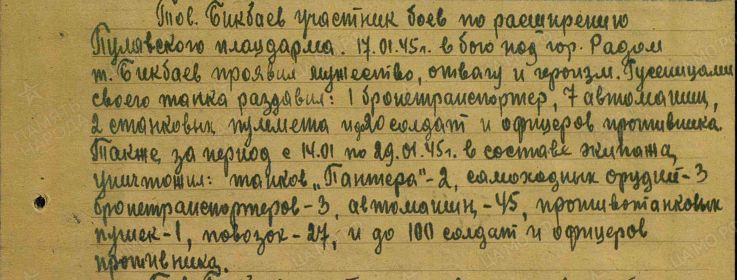 Тов. Бикбаев участник боев по расширению
Пулавского плацдарма. 17.01.45г. в бою под гор. Радом
т. Бикбаев проявил мужество, отвагу и героизм. Гусеницами
своего танка раздавил: 1 бронетранспортер, 7 автомашин,
2 станковых пулемета и до 20 солдат и офицеров противника.
Также за период с 14.01 по 29.01.45г. в составе экипажа,
уничтожил: танков „Пантера"-2, самоходных орудий-3
бронетранспортеров-3, автомашин-45, противотанковых
пушек-1, повозок-27, и до 100 солдат и офицеров
противника.